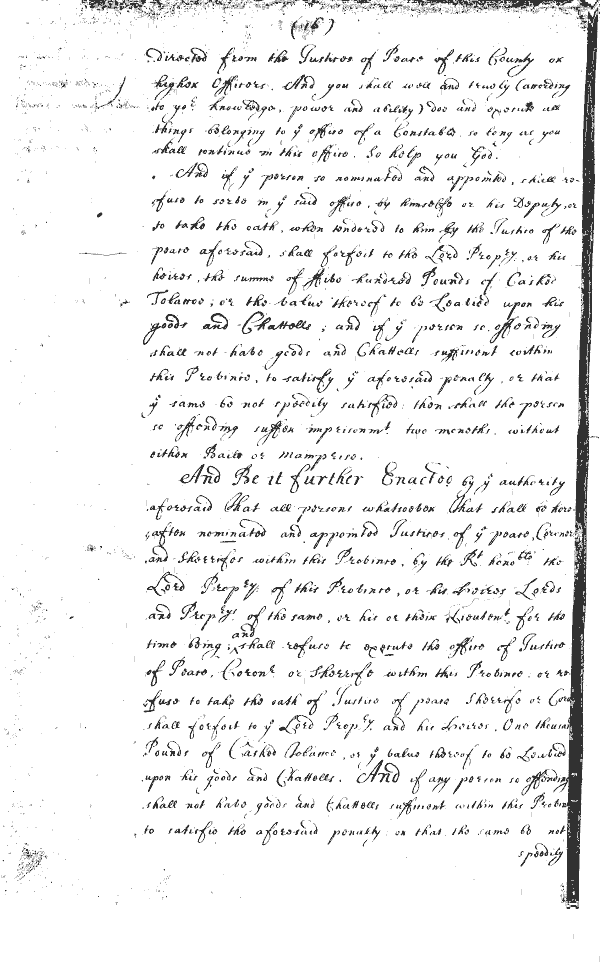 (16)
directed from the Justices of Peace of this County or
higher Officers. And you shall well and truely (according
to yor. knowledge, power and ability) doe and execute all
things belonging to ye office of a Constable, so long as you
shall continue in this office. So help you God.
And if ye person so nominated and appointed, shall re-
fuse to serve in ye said office, by himselfe or his Deputy, or
to take the oath, when tendered to him by the Justice of the
peace aforesaid, shall forfeit to the Lord Propry. or his
heires, the summe of ffive hundred Pounds of Casked
Tobaccoe; or the value thereof to be Leavied upon his
goods and Chattells; and if ye person so offending
shall not have goods and Chattells sufficient within
this Province, to satisfy ye aforesaid penalty, or that
ye same be not speedily satisfied; then shall the person
so offending suffer imprisonmt. two moneths, without
either Baile or mamprise.
And Be it further Enacted by ye authority
aforesaid that all persons whatsoever that shall be here
after nominated and appointed Justices of ye peace, Coroner
and Sherriefes within this Province, by the Rt. honoble the
Lord Propry. of this Province, or his heires Lords
and Proprys. of the same, or his or their Lieutent. for the
time being; and shall refuse to execute the office of Justice
of Peace, Coronr. or Sherriefe within this Province. or re
fuse to take the oath of Justice of peace Sherriefe or Coro
shall forfeit to ye Lord Propry. and his heires, One thousan
Pounds of Casked Tobacco, or ye value thereof to be Leavied
upon his goods and Chattells. And if any person so offending
shall not have goods and Chattells sufficient within this Provin
to satisfie the aforesaid penalty or that the same be not
speedily